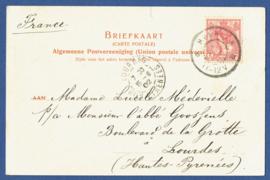 France
BRIEFKAART
(CARTE POSTALE)
Algemeene Postvereeniging (Union postale universelle)
AAN Madame Lucile Médeville
p/a Monsieur l'abbé Goossens
Boulevard de la Grotte
Lourdes
(Hautes-Pyrénées)